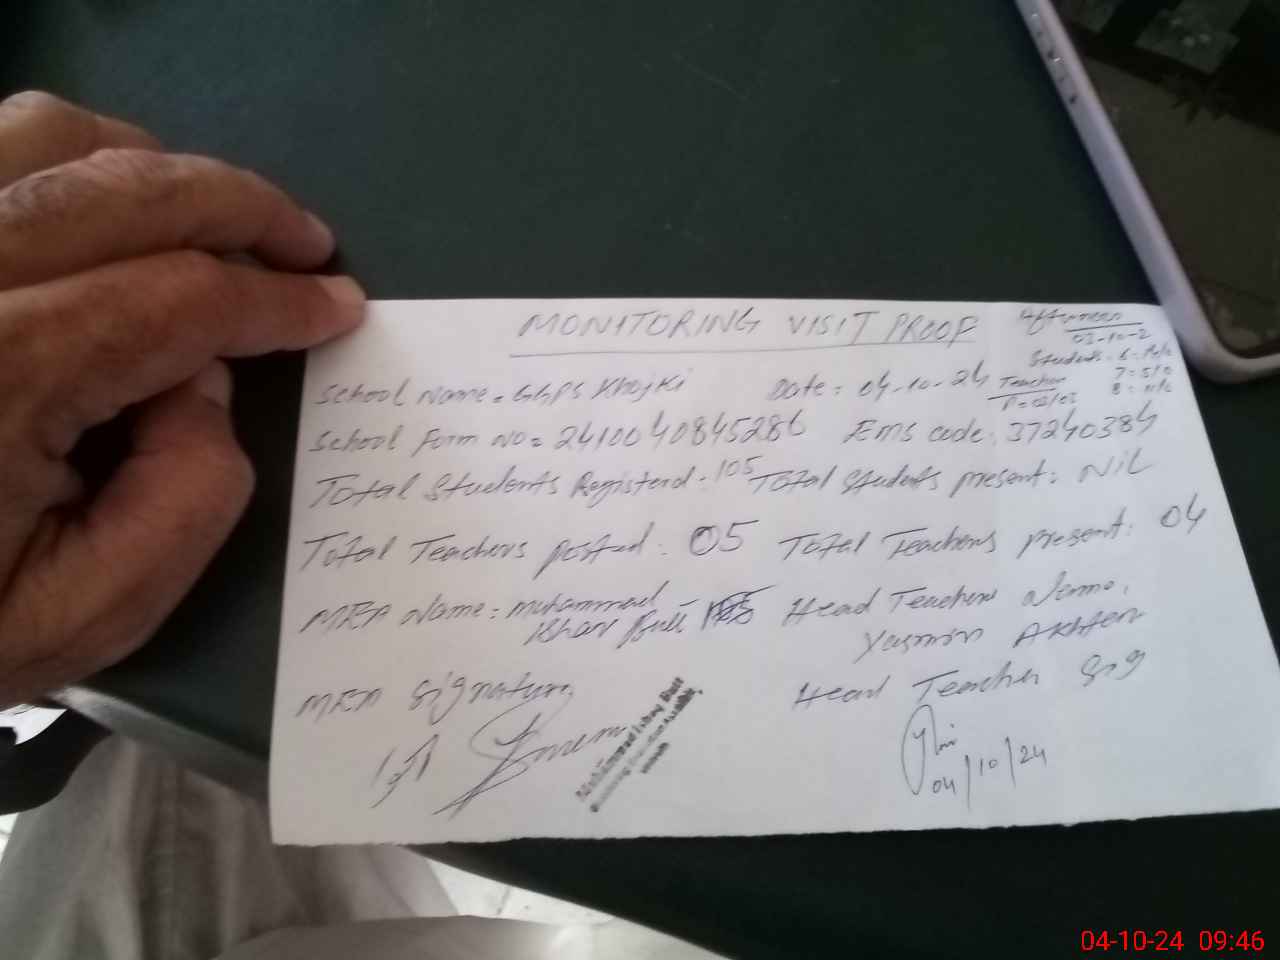 MONITORING VISIT PROOF
Afternoon
02-10-2
Students. 6 =
7 = 5/0
8 =
School Name = GGPS Khojki Date = 04-10-24 Teacher
P = 02/02
School Form NO = 2410040845286 Ems code: 37240384
Total Students Registerd: 105 Total Students present: NiL
Total Teachers posted: 05 Total Teachers present: 04
MEA Name: Muhammad Head Teacher Name,
Ishaq Butt Yasmin Akhter
MEA Signature, Head Teacher Sig
Muhammad Ishaq Butt
04/10/24
04-10-24 09:46